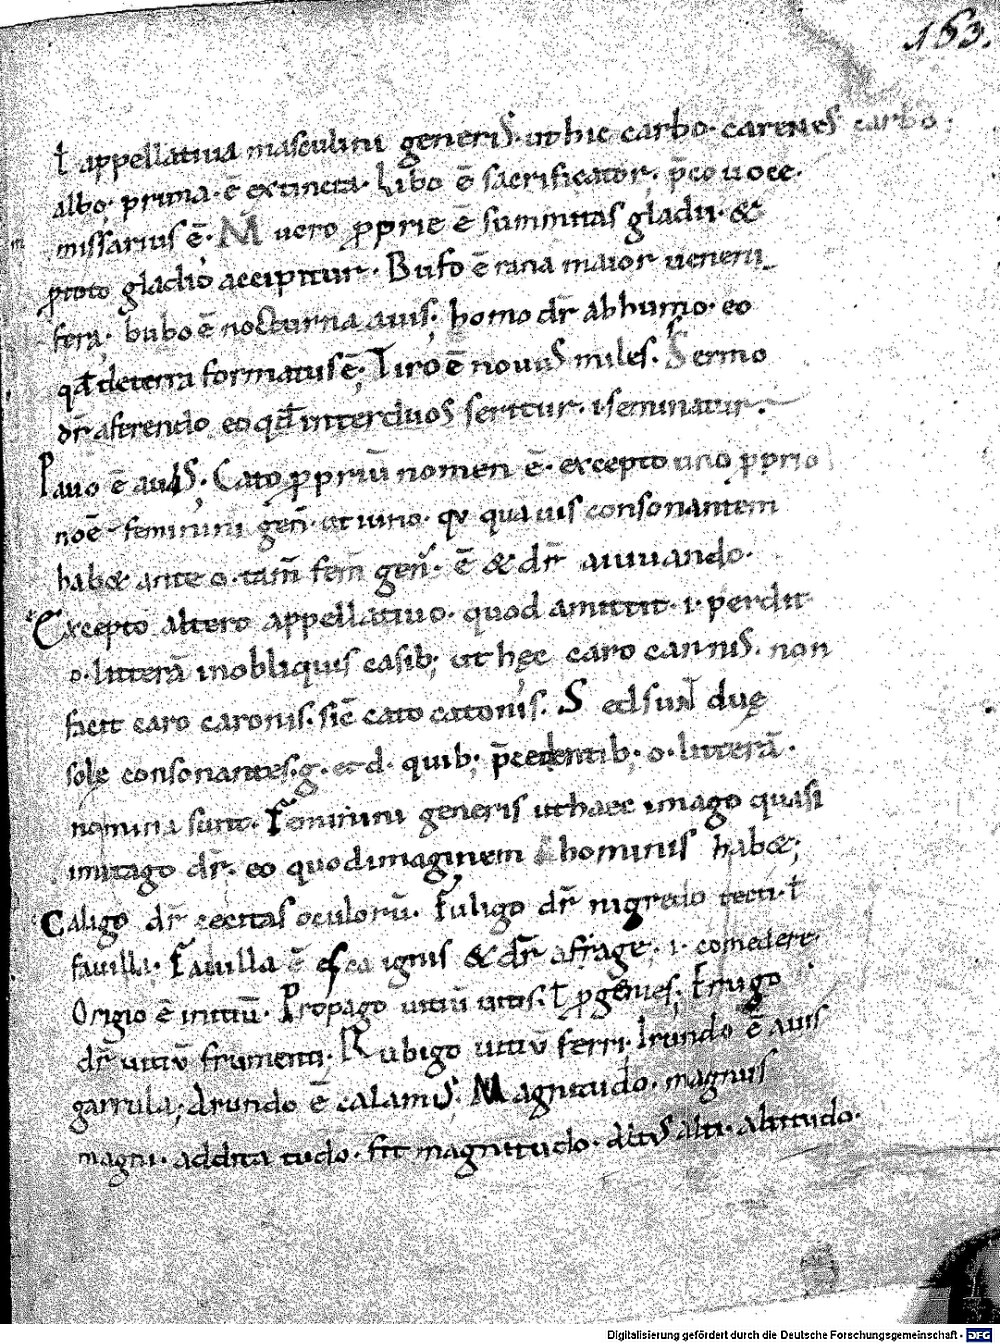 163.
ł appellatiua masculini generis. ut hic carbo. carenes carbo.
albo. prima. ē extincta. Libo ē sacrificator. p̄co uoce.
missarius ē. M uero ꝓprie ē summitas gladii. &
ꝓtoto gladio accipitur. Bufo ē rana maior ueneni
fera. bubo ē nocturna auis. homo dr̄ abhumo. eo
qđ deterra formatus ē. Tiro ē nouus miles. Sermo
dr̄ aserendo eo qđ interduos seritur. i. seminatur.
Pauo ē auis. Cato ꝓpriū nomen ē. excepto uno ꝓprio
noē feminini geñ. ut iuno. qͥ quauis consonantem
hab& ante o. tam̄ fem̄ geñ. ē & dr̄ aiuuando.
Excepto altero appellatiuo. quod amittit. i. perdit
o. litterā inobliquis casib; ut hęc caro carnis. non
facit caro caronis. sic̄ cato catonis. Sed sunt duę
sole consonantes. g. et d. quib; p̄cedentib; o. litterā.
nomina sunt. Feminini generis ut haec imago quasi
imitago dr̄. eo quod imaginem hominis hab&;
Caligo dr̄ cecitas oculorū. Fuligo dr̄ nigredo tecti. ł
fauilla. Fauilla ē esca ignis & dr̄ afrage. i. comedere.
Origio ē initiū. Propago uitiū uitis. ł ꝓgenies. Erugo
dr̄ uitiū frumenti. Rubigo uitiū ferri. Irundo ē auis
garrula; Arundo ē calamus. Magnitudo. magnus
magni. addita tudo. fit magnitudo. altus alti. altitudo.
Digitalisierung gefördert durch die Deutsche Forschungsgemeinschaft - DFG